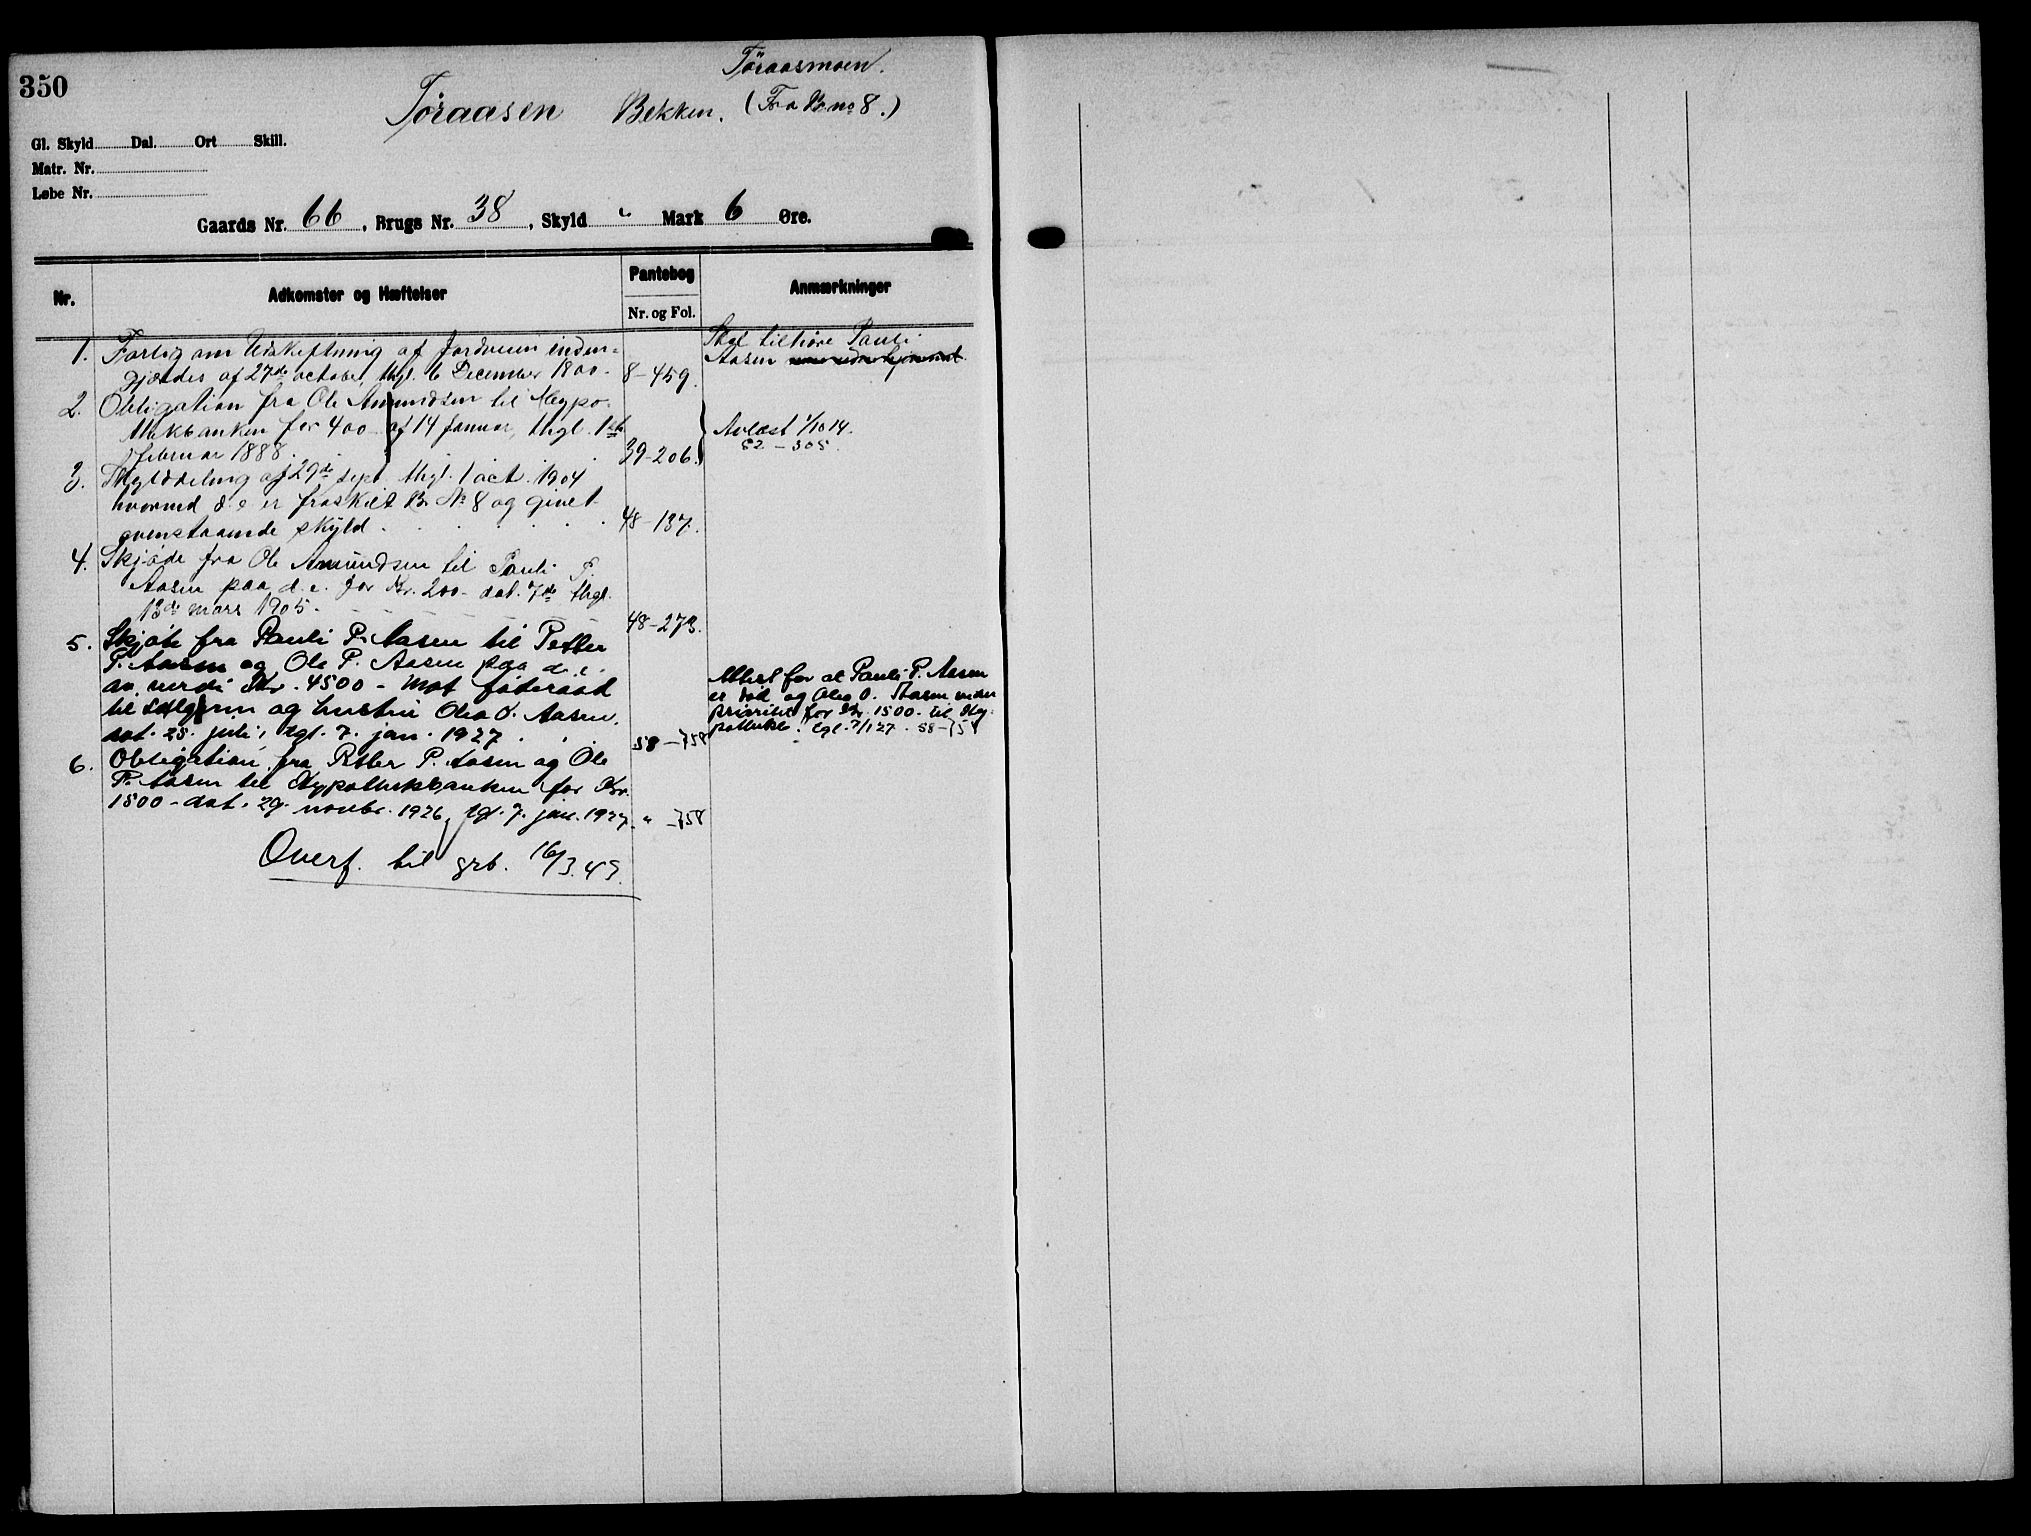 350
Töraasmoen.
Töraasen Bekken. (Fra B. no 8.)
Gl. Skyld Dal. Ort Skill.
Matr. Nr.
Løbe Nr.
Gaards Nr. 66, Brugs Nr. 38, Skyld " Mark 6 Øre.
Nr. Adkomster og Hæftelser Pantebog Nr. og Fol. Anmærkninger
1. Forlig om Udskiftning af Jordveien inden-
gjærdes af 27de october, thgl. 6 December 1800. 8-459.
Skal tilhøre Pauli
Aasen
2. Obligation fra Ole Amundsen til Hypo-
thekbanken for 400 af 14 Januar, thgl. 1ste
februar 1888. 39-206.
Avlæst 1/10 14.
52-305.
3. Skylddeling af 29de sept. thgl. 1 oct. 1904
hvorved d. e. er fraskilt B. No 8 og givet
ovenstaaende skyld. 48-137.
4. Skjøde fra Ole Amundsen til Pauli P.
Aasen paa d. e. for Kr. 200- dat. 7de thgl.
13de mars 1905. 48-273.
5. Skjøte fra Pauli P. Aasen til Petter
P. Aasen og Ole P. Aasen paa d. e.
av verdi Kr. 4500 - mot føderaad
til sælgeren og hustru Olea O. Aasen,
dat. 25. juli, tgl. 7. jan. 1927. 58-758
Attest for at Pauli P. Aasen
er død og Olea O. Aasen viker
prioritet for Kr. 1500.- til Hy-
pothekb. tgl. 7/1 27. 58-758
6. Obligation fra Petter P. Aasen og Ole
P. Aasen til Hypothekbanken for Kr.
1500 - dat. 29. novbr. 1926, tgl. 7. jan. 1927. " -758
Overf. til grb. 16/3.49.